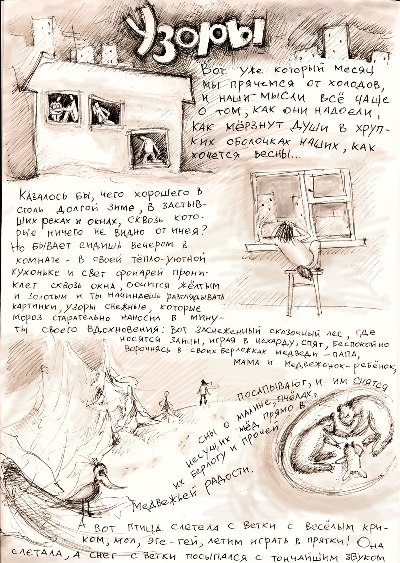 Узоры
Вот уже который месяц
мы прячемся от холодов,
и наши мысли всё чаще
о том, как они надоели,
как мёрзнут души в хруп-
ких оболочках наших, как
хочется весны...
Казалось бы, чего хорошего в
столь долгой зиме, в застыв-
ших реках и окнах, сквозь кото-
рые ничего не видно от инея?
Но бывает сидишь вечером в
комнате - в своей тёпло-уютной
кухоньке и свет фонарей прони-
кает сквозь окна, сочится жёлтым
и золотым и ты начинаешь разглядывать
картинки, узоры снежные, которые
мороз старательно наносил в мину-
ты своего вдохновения: вот заснеженный сказочный лес, где
носятся зайцы, играя в чехарду, спят, беспокойно
ворочаясь в своих берложках медведи - папа,
мама и медвежонок-ребёнок,
посапывают, и им снятся
сны о малине, пчёлах,
несущих мёд прямо в
их берлогу и прочей
медвежьей радости.
Вот птица слетела с ветки с весёлым кри-
ком, мол, эге-гей, летим играть в прятки! Она
слетала, а снег с ветки посыпался с тончайшим звуком